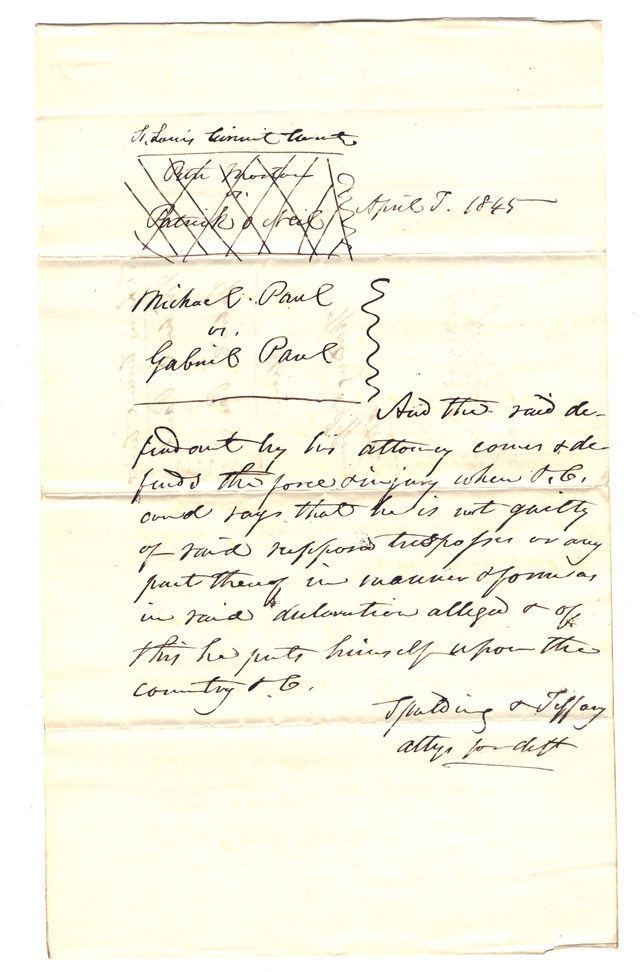 St. Louis Circuit Court
vs.
Patrick O Neil
April T. 1845
Michael Paul
vs.
Gabriel Paul
And the said de-
fendant by his attorney comes & de
fends the force & injury when &.C.
and says that he is not guilty
of said supposed trespasses or any
part thereof in manner & form as
in said declaration alleged & of
this he puts himself upon the
country &.C.
Spalding & Tiffany
attys for deft